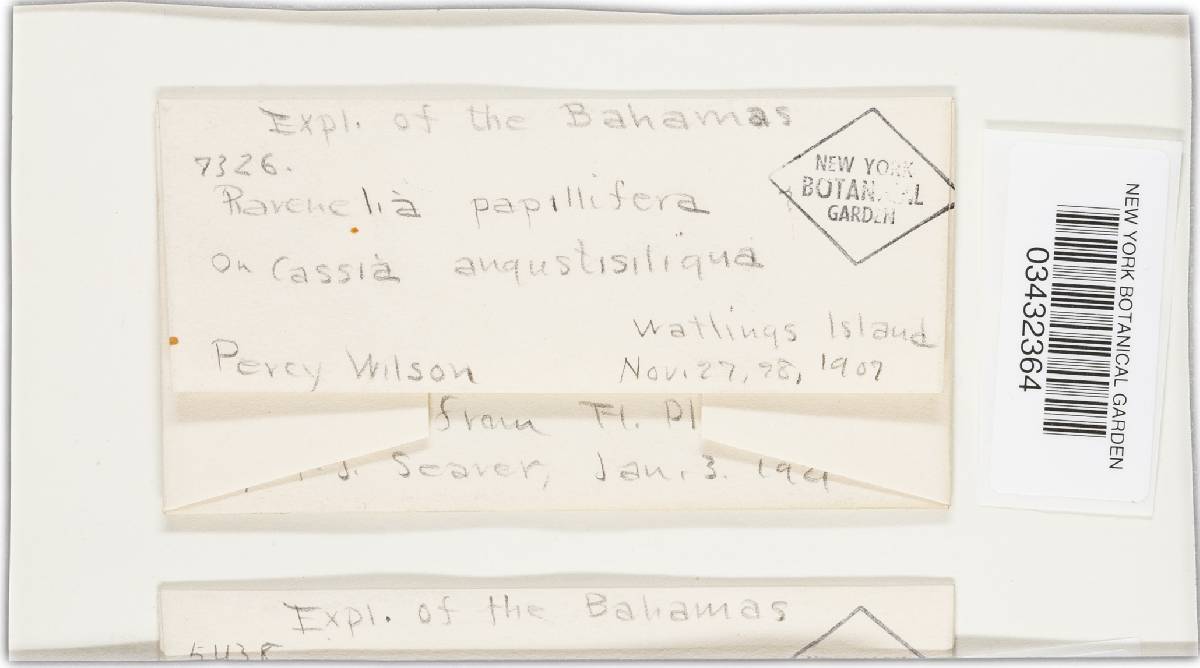 Expl. of the Bahamas
7326.
Ravenelia papillifera
On Cassia angustisiliqua
Watlings Island
Percy Wilson Nov. 27, 28, 1907
NEW YORK
BOTANICAL
GARDEN
from Fl. Pl
Seaver, Jan. 3.
NEW YORK BOTANICAL GARDEN
03432364
Expl. of the Bahamas